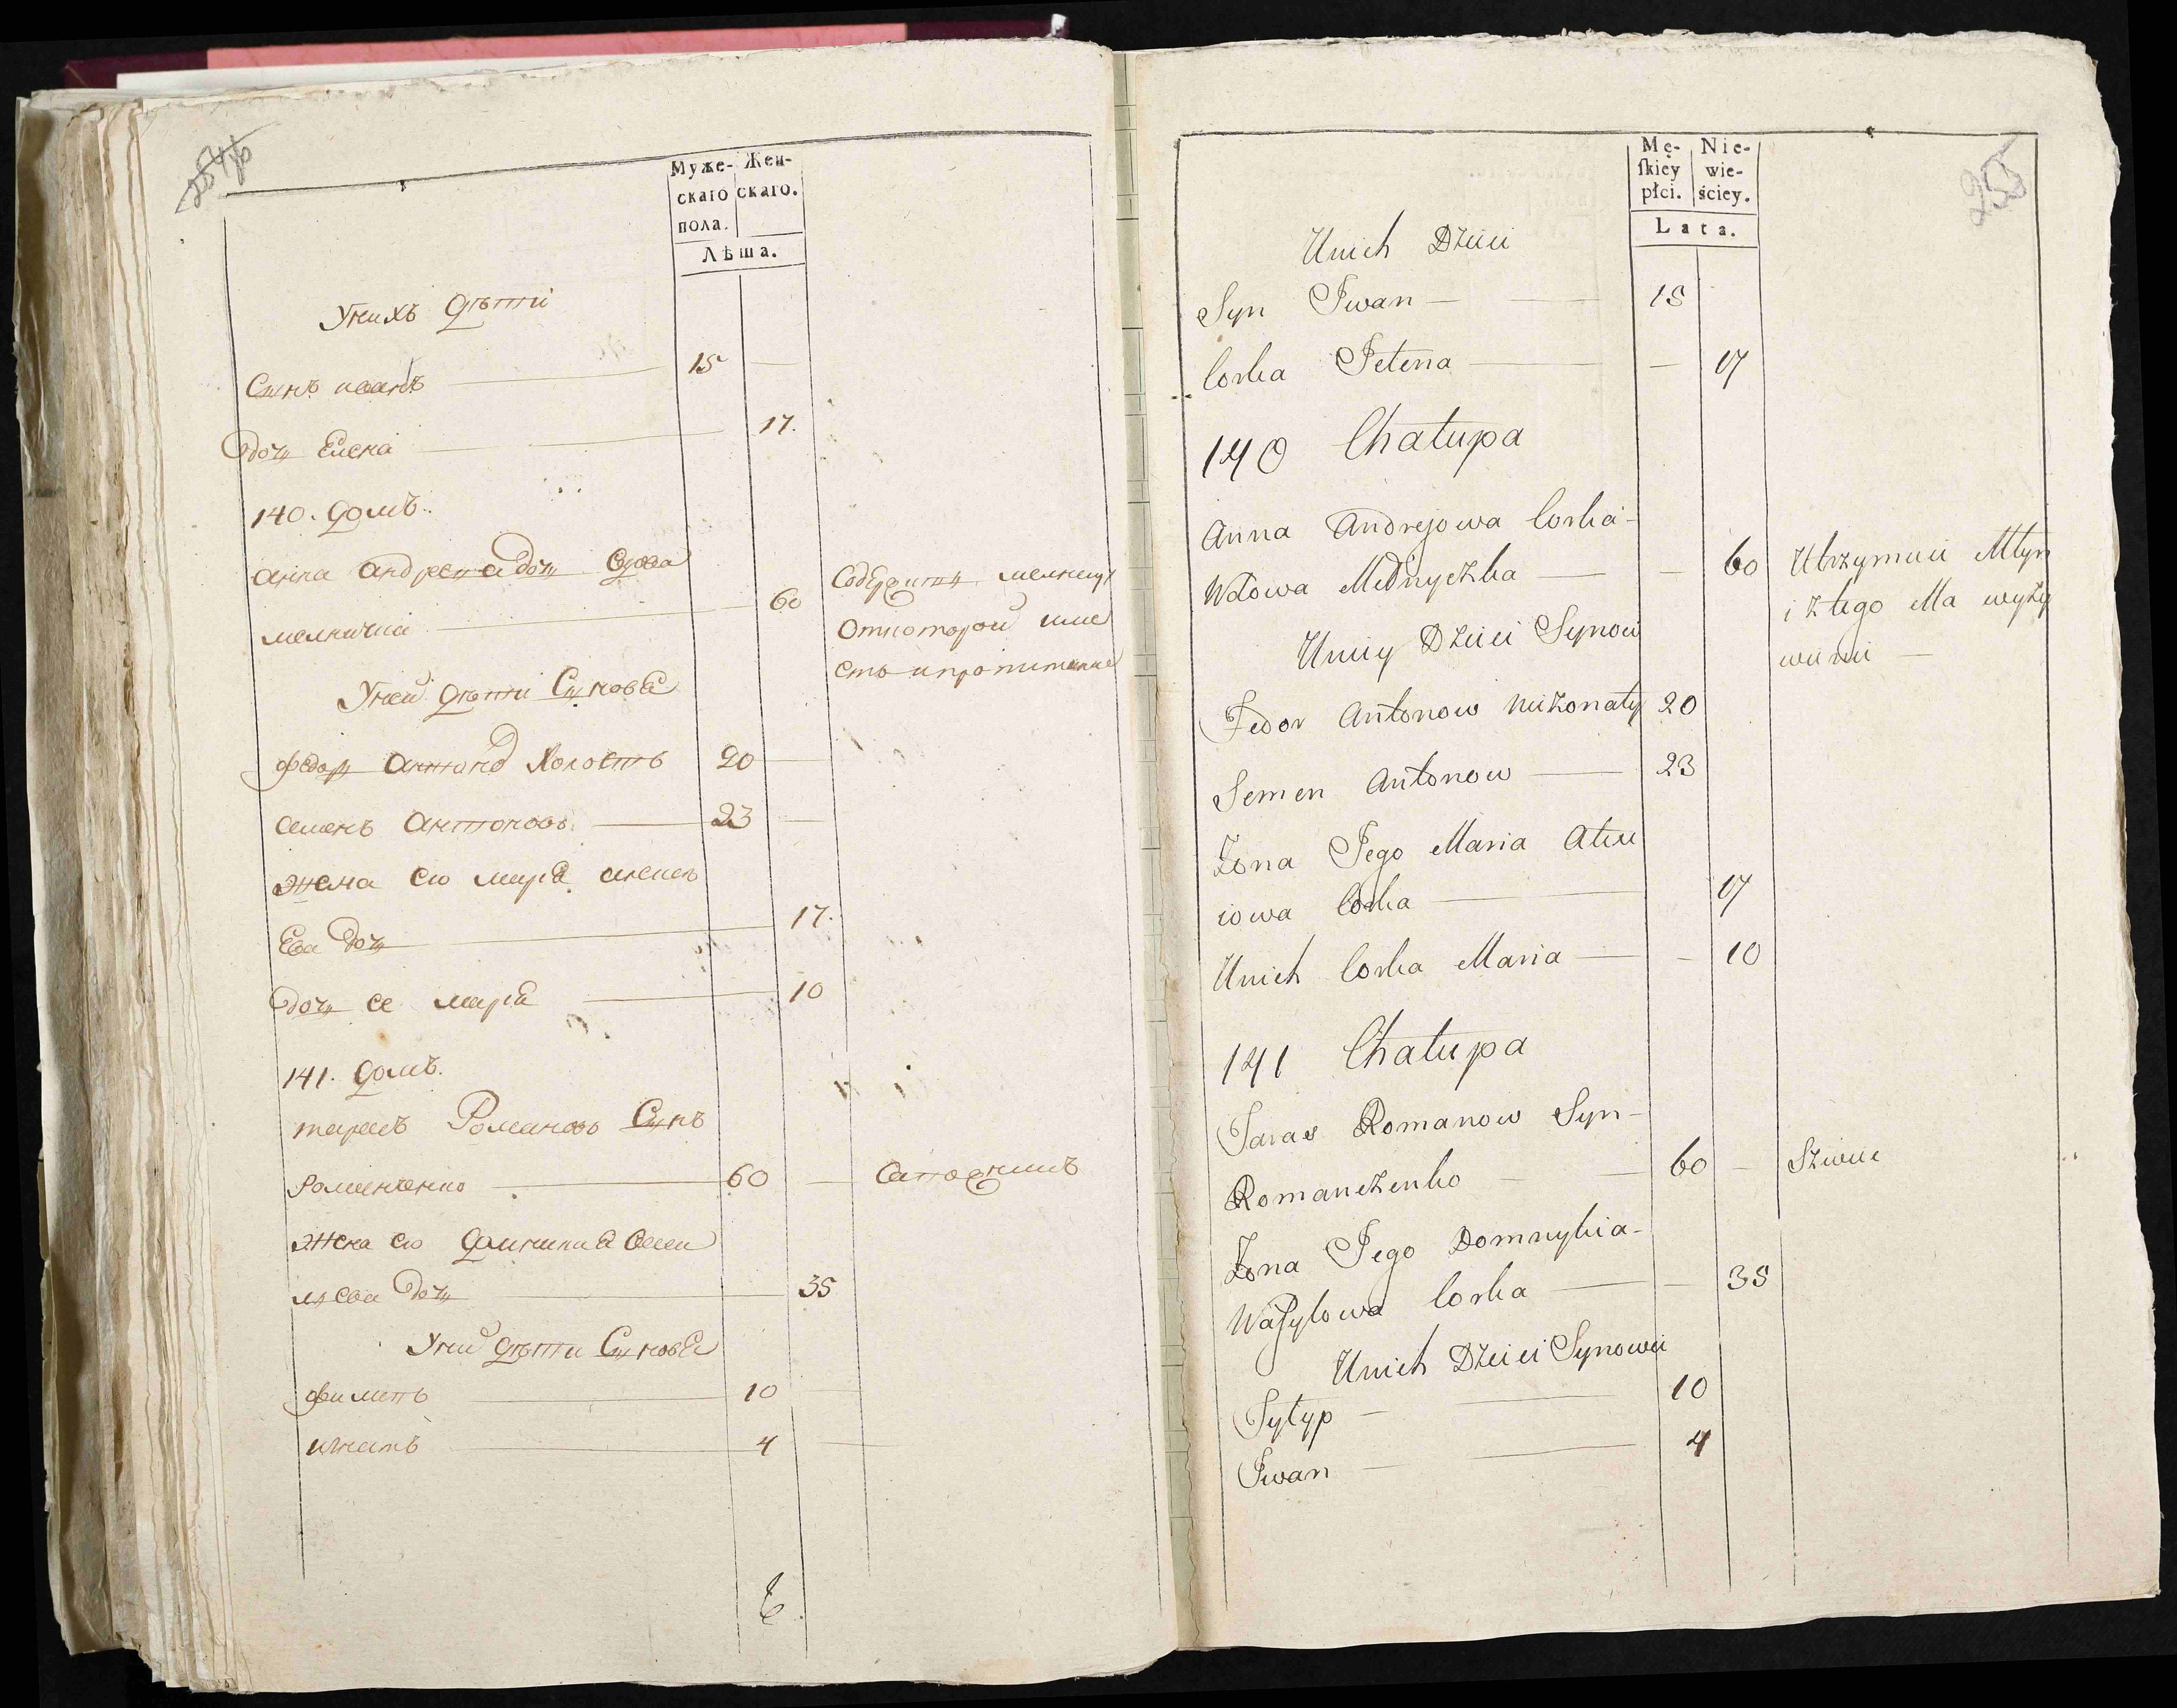 254об
Муже-
скаго
пола.
Жен-
скаго.
Лѣта.
Унихъ дѣти
Сынъ иванъ 15
дочь Елена 17.
140. домъ.
анна андреева дочь вдова
мелничка 60
Содержить мелницу
Откоторой име
еть ипропитание
Уней дѣти Сыновья
Федоръ антоновъ Холостъ 20
семенъ антоновъ 23
Жена его марья алексѣ
Ева дочь 17.
дочь ее марья 10
141. домъ.
тарасъ Романовъ Сынъ
романченко 60 Сапожникъ
Жена его домникия васи
льева дочь 35
Уних дѣти Сыновья
филипъ 10
игнатъ 4
255
Mę-
ſkiey
płci.
Nie-
wie-
ściey.
Lata.
Unich Dzieci
Syn Iwan 15
Corka Jelena 17
140 Chałupa
Anna Andrejowa Corka
Wdowa Melnyczka 60 Utrzymuie Młyn
i z tego Ma wyży
wienie
Uniey Dzieci Synowie
Fedor Antonow nieżonaty 20
Semen Antonow 23
Żona Jego Maria Alex
iowa Corka 17
Unich Corka Maria 10
141 Chałupa
Taras Romanow Syn
Romanczenko 60 Szwiec
Żona Jego Domnykia
Waſylowa Corka 35
Unich Dzieci Synowie
Fylyp 10
Iwan 4